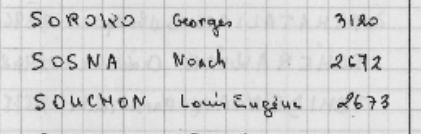 SOROKO Georges 3120
SOSNA Noach 2672
SOUCHON Louis Eugène 2673